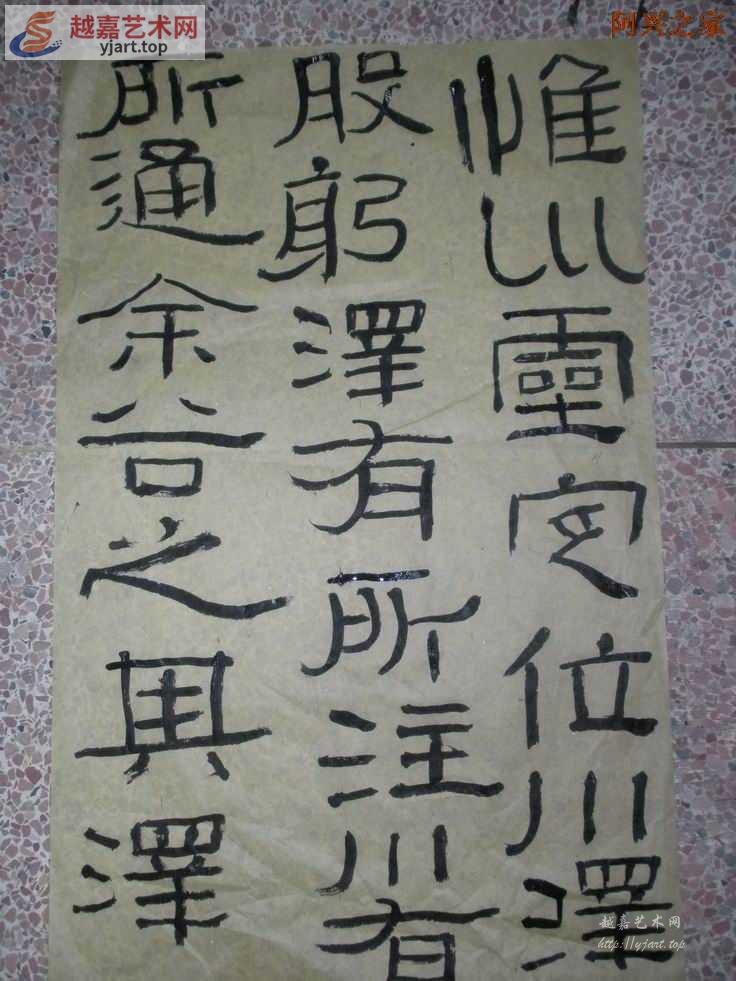 越嘉艺术网
yjart.top
阿兴之家
惟巛靈定位川澤
股躬澤有所注川有
所通余谷之澤
越嘉艺术网
http://yjart.top